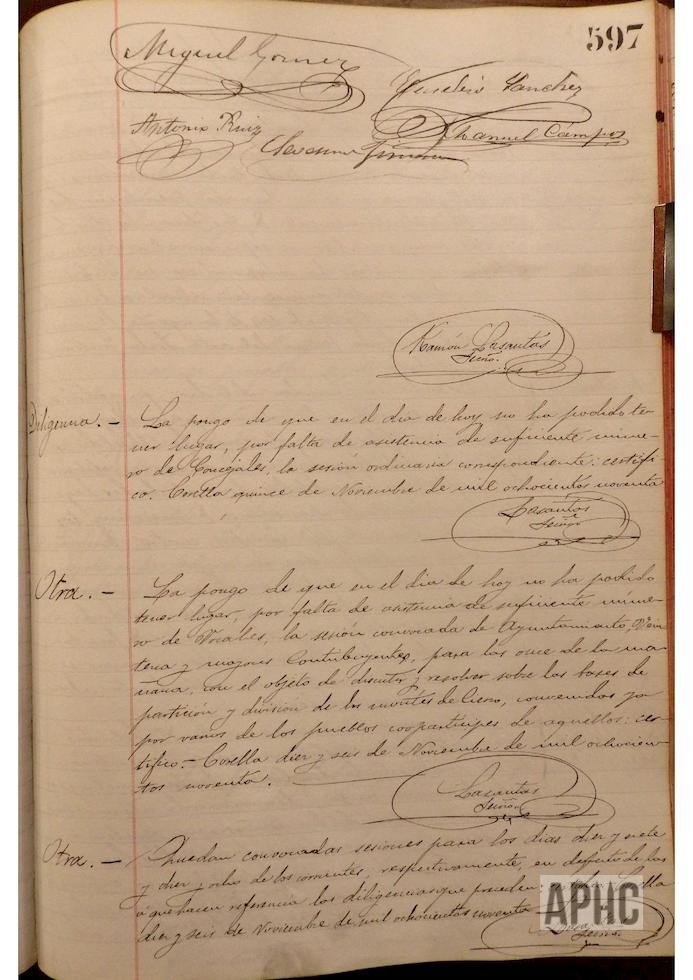 597
Miguel Gomez
Eusebio Sanchez
Antonio Ruiz
Manuel Campos
Ramón Lasantas
Srio.
Diligencia. — La pongo de que en el dia de hoy no ha podido te-
ner lugar, por falta de asistencia de suficiente núme-
ro de Concejales, la sesión ordinaria correspondiente: certifi-
co. Corella quince de Noviembre de mil ochocientos noventa
Lasantas
Srio.
Otra. — La pongo de que en el dia de hoy no ha podido
tener lugar, por falta de asistencia de suficiente núme-
ro de Vocales, la sesión convocada de Ayuntamiento, Vein-
tena y mayores Contribuyentes, para las once de la ma-
ñana, con el objeto de discutir y resolver sobre las bases de
partición y división de los montes de Cierzo, convenidas ya
por varios de los pueblos cooparticipes de aquellos: cer-
tifico. — Corella diez y seis de Noviembre de mil ochocien-
tos noventa.
Lasantas
Srio.
Otra. — Quedan convocadas sesiones para los dias diez y siete
y diez y ocho de los corrientes, respectivamente, en defecto de las
á que hacen referencia las diligencias que preceden: Corella
diez y seis de Noviembre de mil ochocientos noventa
APHC